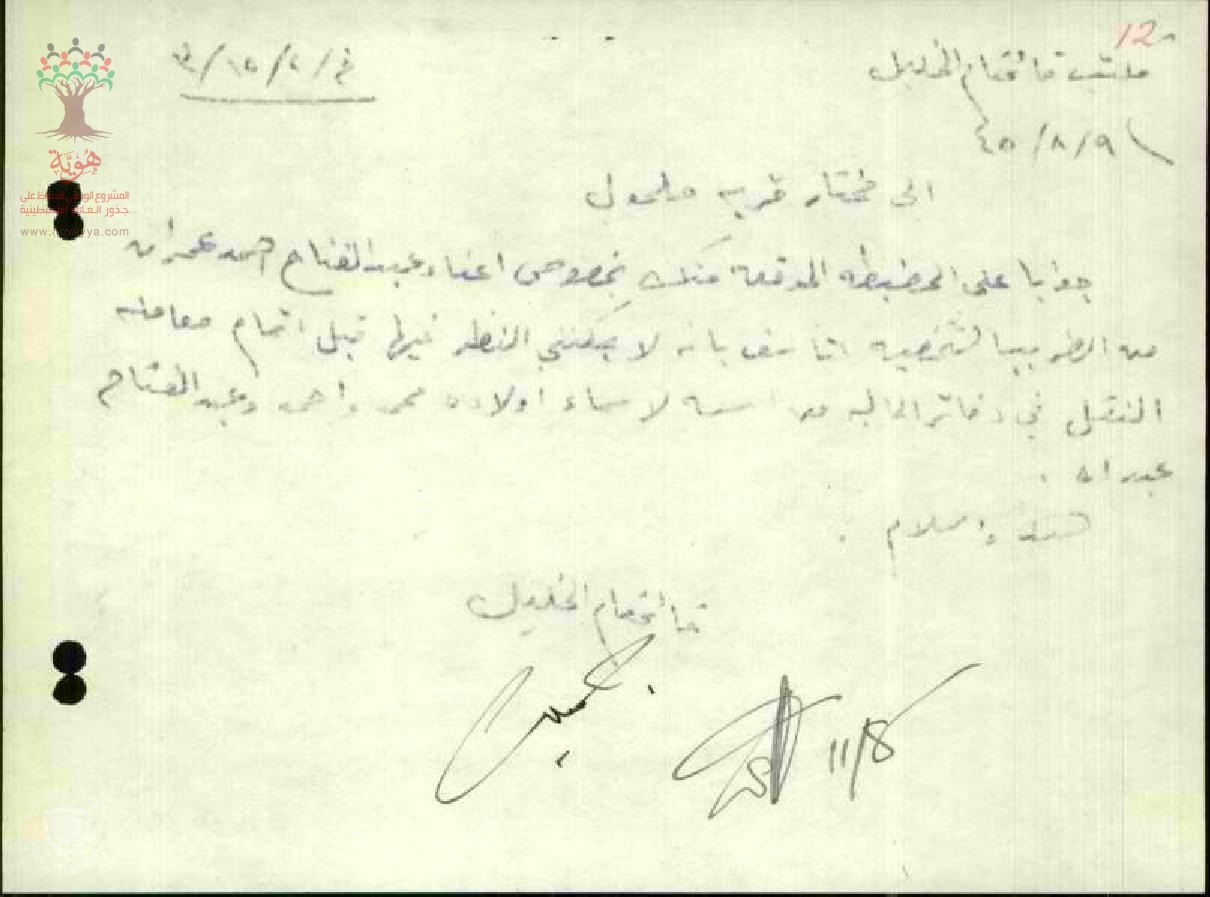 12
مكتب قائمقام الخليل
خ/٢/١٥/
٩/٨/٤٥
الى مختار قرية
جوابا على المضبطه الموقعه منك بخصوص اعفاء عبد الفتاح احمد عمران
من الضريبه الشخصيه اتأسف بانه لا يمكنني النظر فيها قبل اتمام معامله
النقل في دفاتر الماليه من اسمه لاسماء اولاده محمد واحمد وعبد الفتاح
.
والسلام .
قائمقام الخليل
11/8
هُوِيَّة
المشروع الوطني للحفاظ على
جذور العائلة الفلسطينية
www.howiyya.com